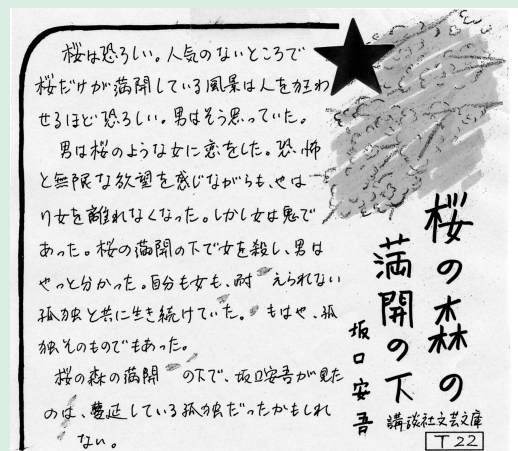 桜は恐ろしい。人気のないところで
桜だけが満開している風景は人を狂わ
せるほど恐ろしい。男はそう思っていた。
男は桜のような女に恋をした。恐怖
と無限な欲望を感じながらも、やは
り女を離れなくなった。しかし女は鬼で
あった。桜の満開の下で女を殺し、男は
やっと分かった。自分も女も、耐えられない
孤独と共に生き続けていた。もはや、孤
独そのものでもあった。
桜の森の満開の下で、坂口安吾が見た
のは、蔓延している孤独だったかもしれ
ない。
桜の森の
満開の下
坂口安吾
講談社文芸文庫
T22